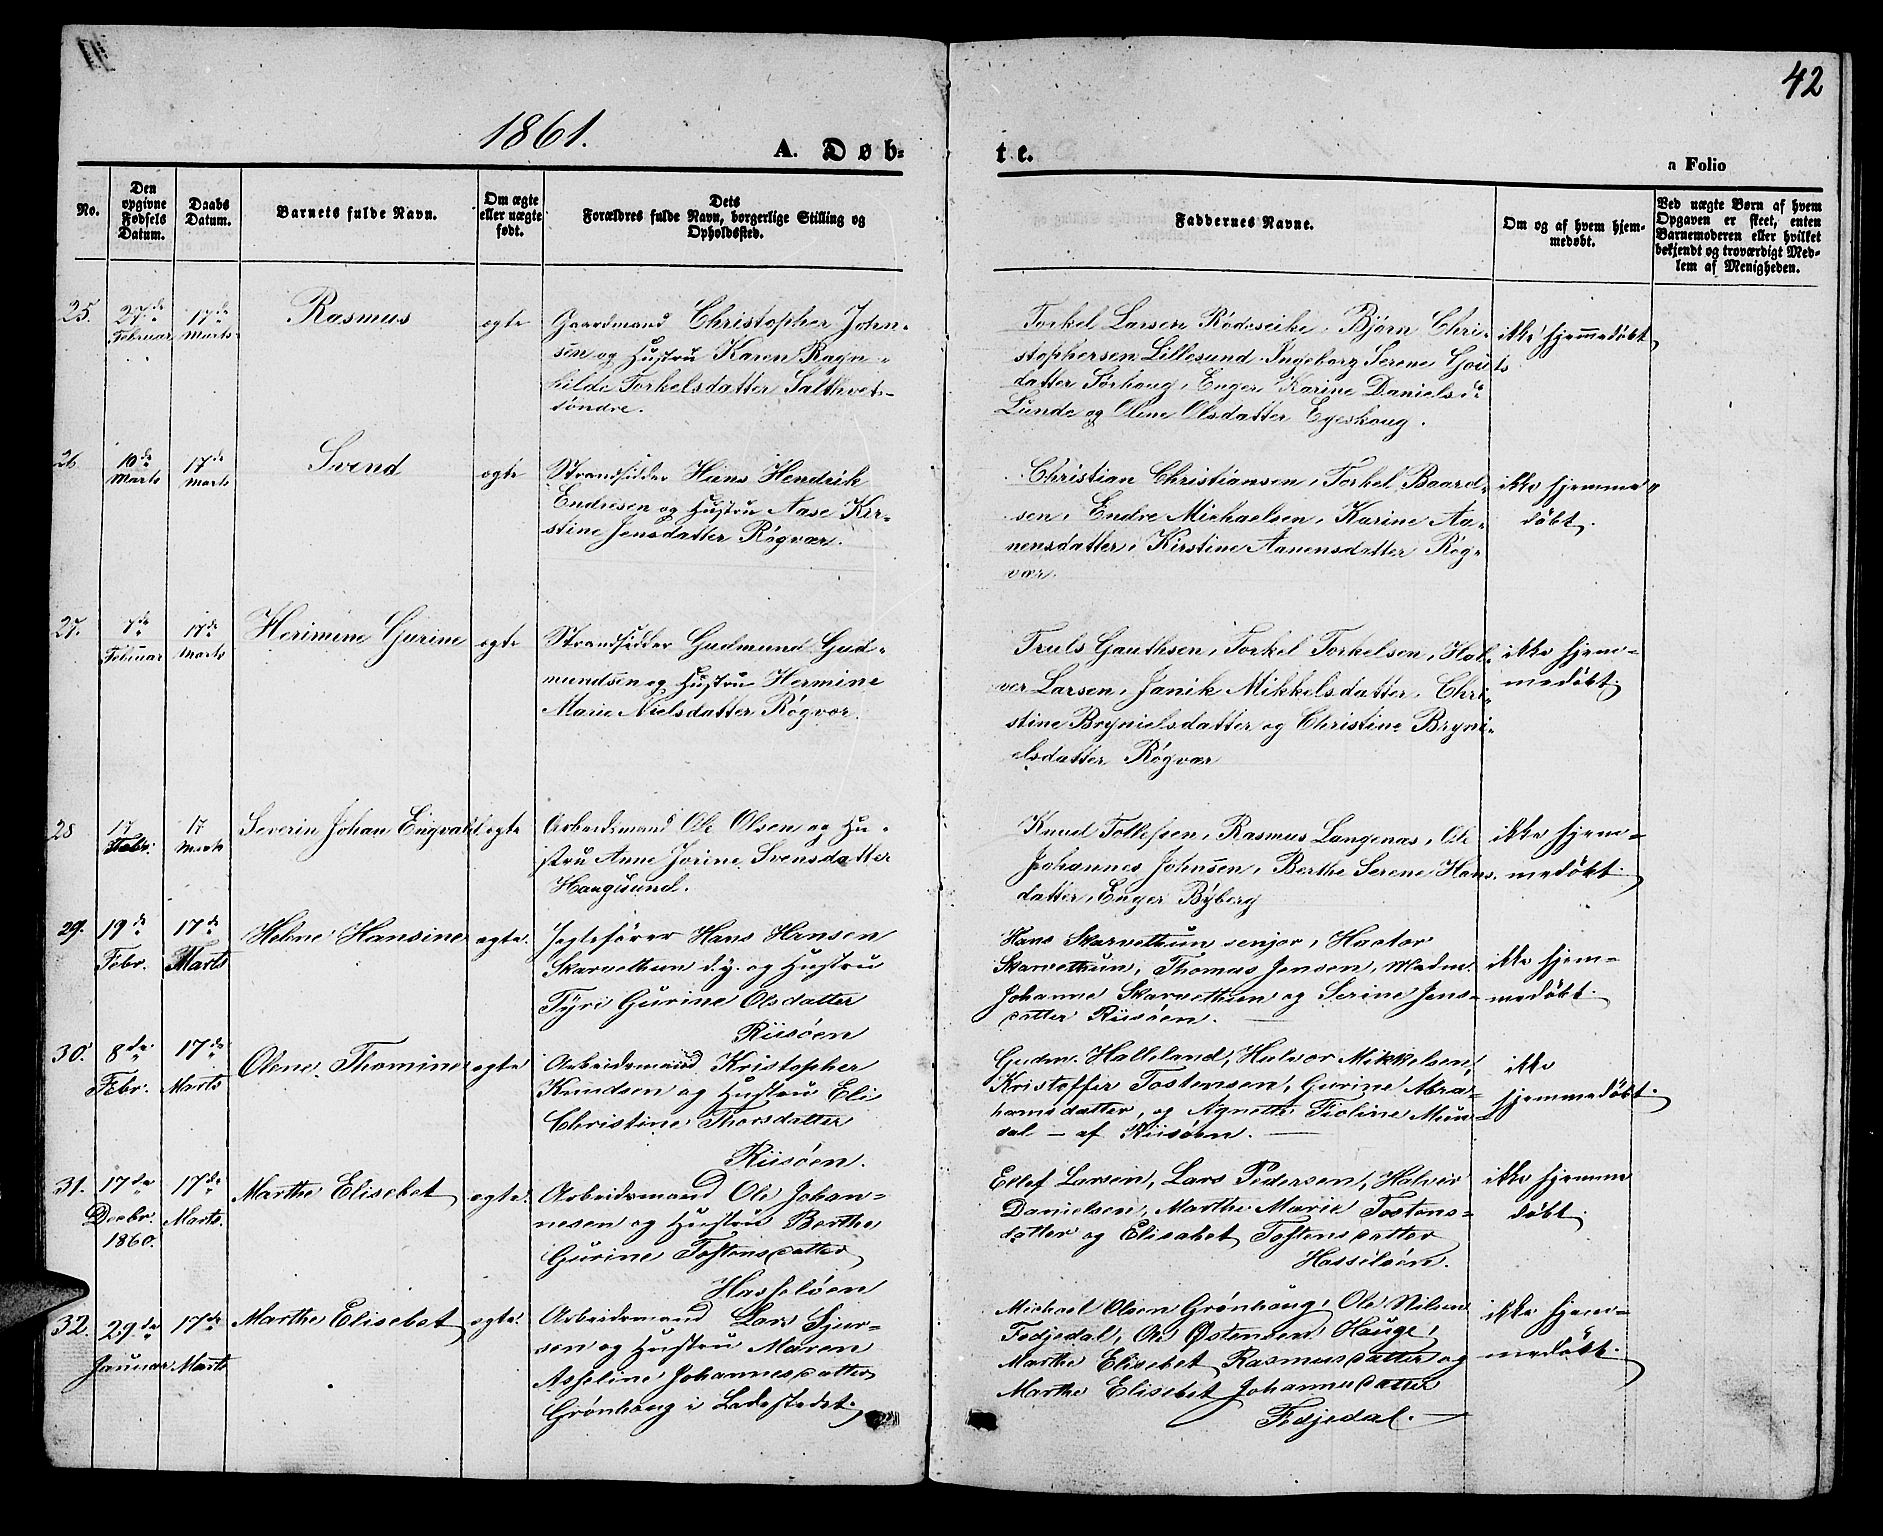 42
1861.
A. Døb-
te.
a Folio
No.
Den opgivne Fødsels Datum.
Daabs Datum.
Barnets fulde Navn.
Om ægte eller uægte født.
Dets Forældres fulde Navn, borgerlige Stilling og Opholdssted.
Faddernes Navne.
Om og af hvem hjem-
medøbt.
Ved uægte Børn af hvem
Opgaven er skeet, enten
Barnemoderen eller hvilket
bekjendt og troværdigt Med-
lem af Menigheden.
25.
27de
Februar
17de
Marts
Rasmus
ægte
Gaardmand Christopher John-
sen og Hustru Karen Ragn-
hilde Torkelsdatter Salthvet
søndre.
Torkel Larsen Rødeseike, Bjørn Chri-
stophersen Lillesund, Ingeborg Serene Gouts
datter Sørhoug, Enger Karine Danielsd.
Lunde og Olene Olsdatter Egeskoug.
ikke hjemmedøbt
26
10de
Marts
17de
Marts
Svend
ægte
Strandsidder Hans Hendrik
Endresen og Hustru Aase Kir-
stine Jensdatter Røgvær.
Christian Christiansen, Torkel Baard-
sen, Endre Michaelsen, Karine Aa-
nensdatter, Kirstine Aanensdatter Røg-
vær.
ikke hjemme
døbt.
27.
7de
Februar
17de
Marts
Herimine Gurine
ægte
Strandsidder Gudmund Gud-
mundsen og Hustru Hermine
Marie Nielsdatter Røgvør.
Truls Gauthsen, Torkel Torkelsen, Hal-
ver Larsen, Janik Mikkelsdatter, Chri-
stine Brynielsdatter og Christine Bryni-
elsdatter Røgvær
ikke hjem-
medøbt.
28
17
Febr.
17
Marts
Severin Johan Engvald
ægte
Arbeidsmand Ole Olsen og Hu-
stru Anne Jorine Svensdatter
Haugesund.
Knud Tollefsen, Rasmus Langenas, Ole
Johannes Johnsen, Berthe Serene Hans-
datter, Enger Byberg
ikke hjem-
medøbt.
29.
19de
Febr.
17de
Marts
Helene Hansine
ægte.
Jagtefører Hans Hansen
Skarvethun d.y. og Hustru
Tyri Gurine Olsdatter
Riisøen
Hans Skarvethun senjor, Hactor
Skarvethun, Thomas Jensen, Madm.
Johanne Skarvethun og Serine Jens-
datter Riisøen.
ikke hjem-
medøbt.
30.
8de
Febr.
17de
Marts
Olene Thomine
ægte
Arbeidsmand Kristopher
Knudsen og Hustru Eli
Christine Thorsdatter
Riisøen.
Gudm. Halleland, Halvor Mikkelsen,
Kristoffer Tostensen, Gurine Abra-
hamsdatter, og Agnethe Fioline Mun-
dal – af Riisøen.
ikke
hjemmedøbt.
31.
17de
Decbr.
1860.
17de
Marts.
Marthe Elisebet
ægte.
Arbeidsmand Ole Johan-
nesen og Hustru Berthe
Gurine Tostensdatter
Hasseløen
Ellef Larsen, Lars Pedersen, Halver
Danielsen, Marthe Marie Tostens-
datter og Elisabet Tostensdatter
Hasseløen.
ikke hjemme
døbt.
32.
29de
Januar
17de
Marts
Marthe Elisebet
ægte.
Arbeidsmand Lars Sjur-
sen og Hustru Maren
Asseline Johannesdatter
Grønhaug i Ladestedet.
Michael Olsen Grønhoug, Ole Nilsen
Fodjedal, Ole Østensen Hauge,
Marthe Elisebet Rasmusdatter og
Marthe Elisebet Johannesdatter
Fodjedal.
ikke hjem-
medøbt.